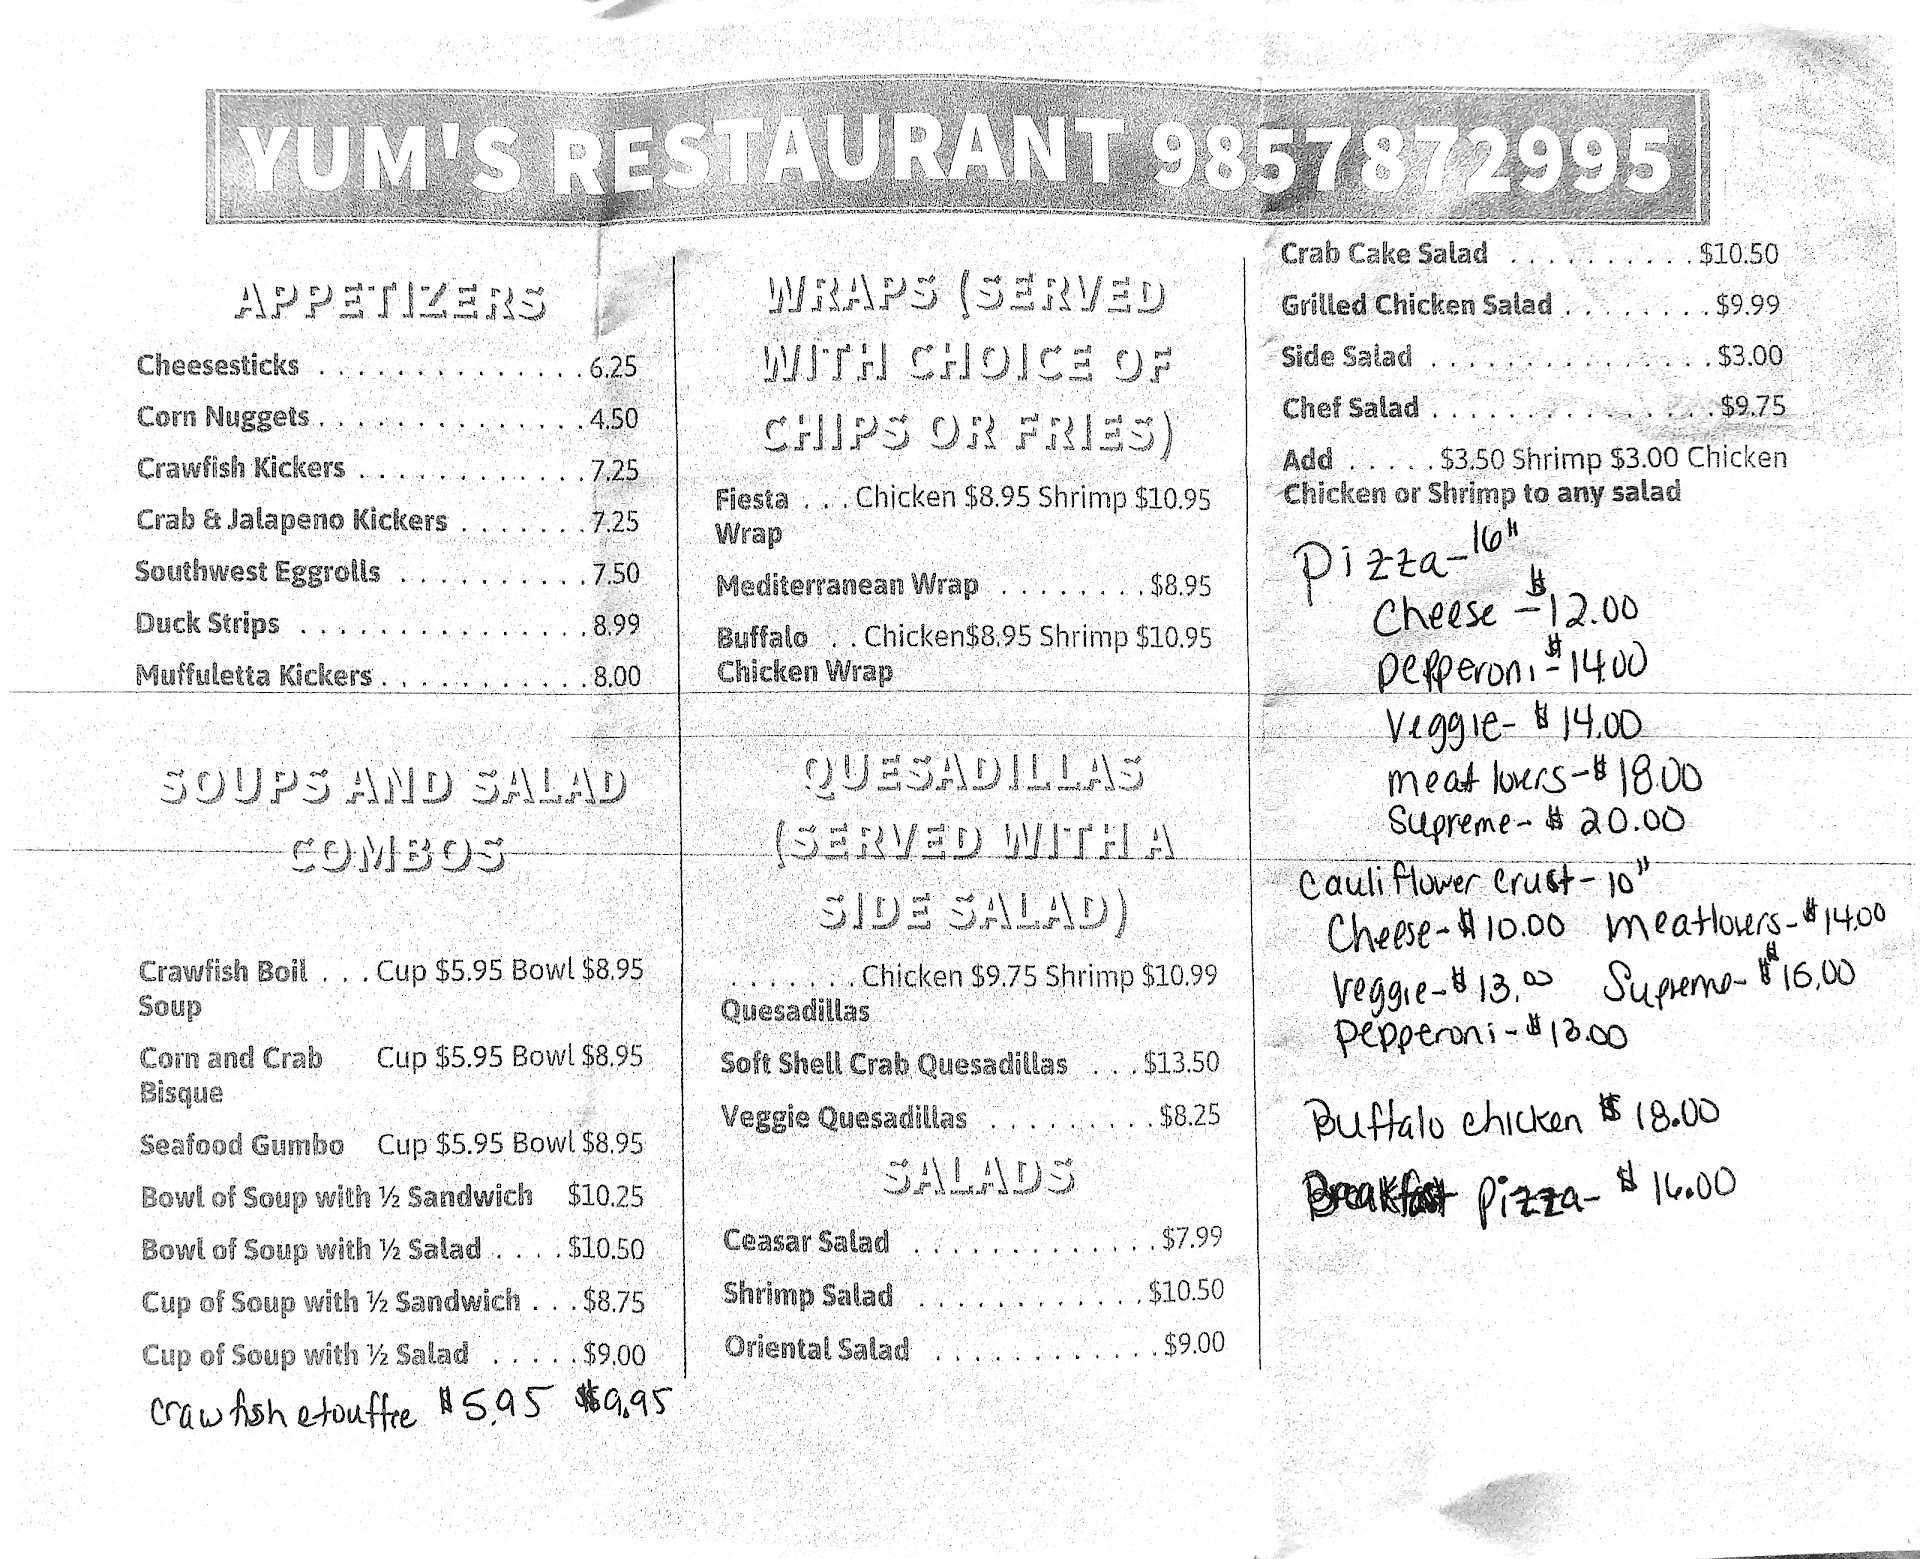 YUM'S RESTAURANT 9857872995
APPETIZERS
Cheesesticks . . . . . . . . . . . . . . 6.25
Corn Nuggets . . . . . . . . . . . . . . 4.50
Crawfish Kickers . . . . . . . . . . . . 7.25
Crab & Jalapeno Kickers . . . . . . . 7.25
Southwest Eggrolls . . . . . . . . . . 7.50
Duck Strips . . . . . . . . . . . . . . . 8.99
Muffuletta Kickers . . . . . . . . . . . 8.00
SOUPS AND SALAD
COMBOS
Crawfish Boil . . . Cup $5.95 Bowl $8.95
Soup
Corn and Crab Cup $5.95 Bowl $8.95
Bisque
Seafood Gumbo Cup $5.95 Bowl $8.95
Bowl of Soup with ½ Sandwich $10.25
Bowl of Soup with ½ Salad . . . . $10.50
Cup of Soup with ½ Sandwich . . . $8.75
Cup of Soup with ½ Salad . . . . . $9.00
Crawfish etouffee $5.95 $9.95
WRAPS (SERVED
WITH CHOICE OF
CHIPS OR FRIES)
Fiesta . . . Chicken $8.95 Shrimp $10.95
Wrap
Mediterranean Wrap . . . . . . . . $8.95
Buffalo . . Chicken$8.95 Shrimp $10.95
Chicken Wrap
QUESADILLAS
(SERVED WITH A
SIDE SALAD)
. . . . . . . Chicken $9.75 Shrimp $10.99
Quesadillas
Soft Shell Crab Quesadillas . . . $13.50
Veggie Quesadillas . . . . . . . . . $8.25
SALADS
Ceasar Salad . . . . . . . . . . . . . $7.99
Shrimp Salad . . . . . . . . . . . . $10.50
Oriental Salad . . . . . . . . . . . . $9.00
Crab Cake Salad . . . . . . . . . . $10.50
Grilled Chicken Salad . . . . . . . . $9.99
Side Salad . . . . . . . . . . . . . . . $3.00
Chef Salad . . . . . . . . . . . . . . . $9.75
Add . . . . . $3.50 Shrimp $3.00 Chicken
Chicken or Shrimp to any salad
Pizza - 16"
Cheese - $12.00
Pepperoni - $14.00
Veggie - $14.00
meat lovers - $18.00
Supreme - $20.00
Cauliflower crust - 10"
Cheese - $10.00 meatlovers - $14.00
Veggie - $13.00 Supreme - $15.00
Pepperoni - $13.00
Buffalo chicken $18.00
Breakfast Pizza - $16.00